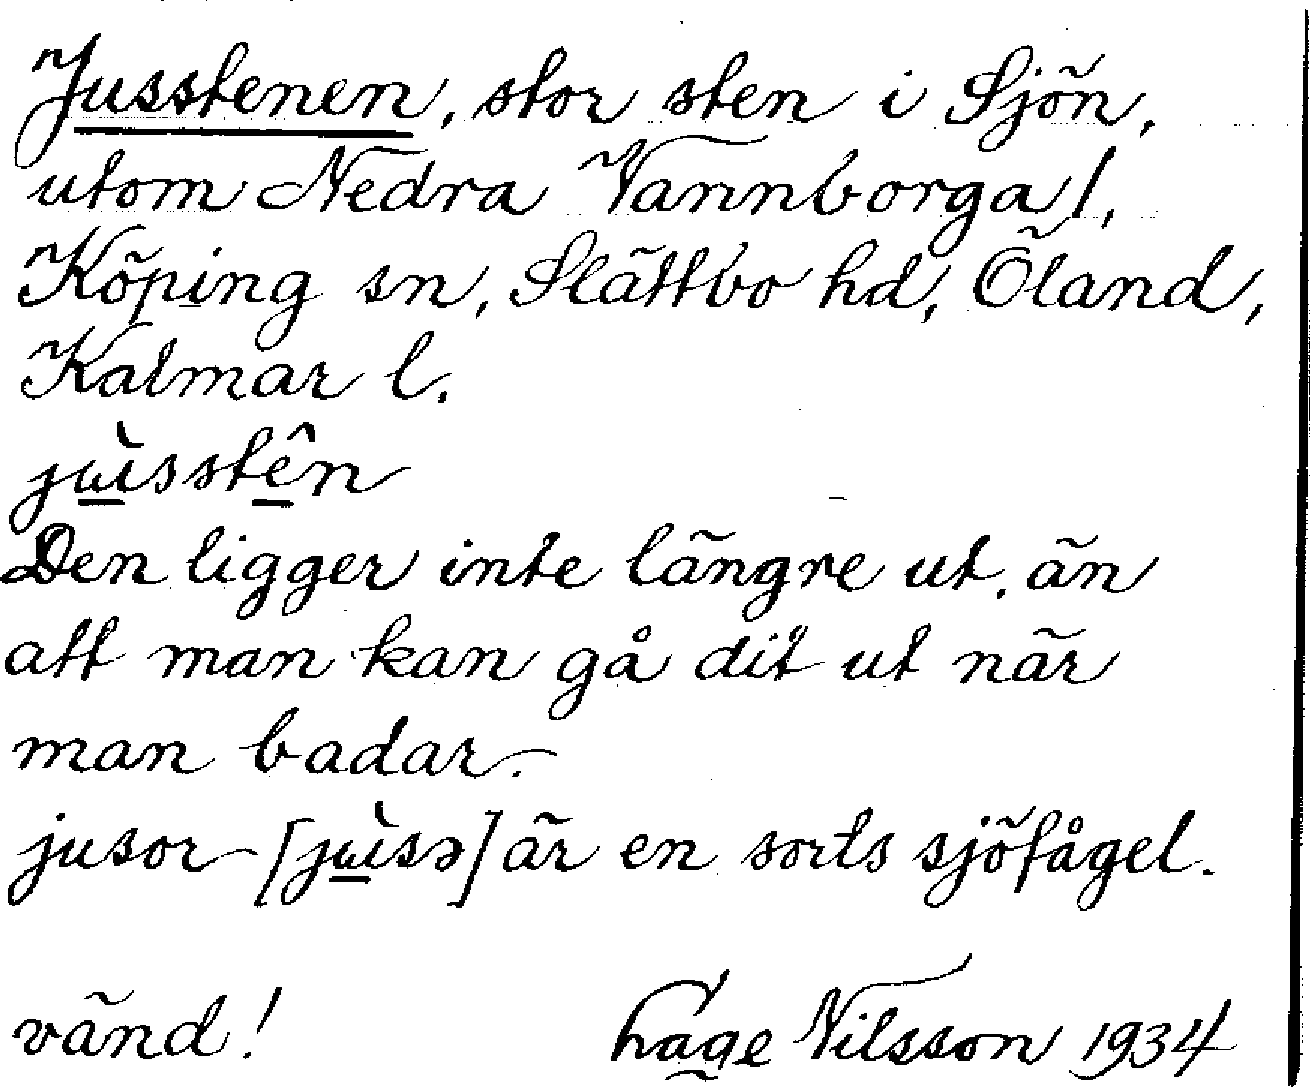 Jusstenen, stor sten i Sjön,
utom Nedra Vannborga /,
Köping sn, Slättbo hd, Öland,
Kalmar l.
jɯ̀sstên
Den ligger inte längre ut, än
att man kan gå dit ut när
man badar.
jusor [jɯ̀sə] är en sorts sjöfågel.
vänd! Hage Nilsson 1934